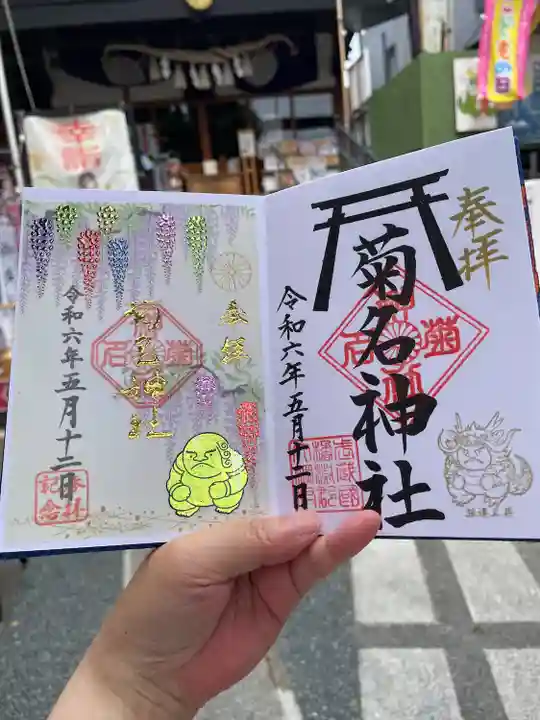 奉拝
菊名神社
令和六年五月十二日
奉拝
菊名神社
令和六年五月十二日
参拝
記念
こどもの日